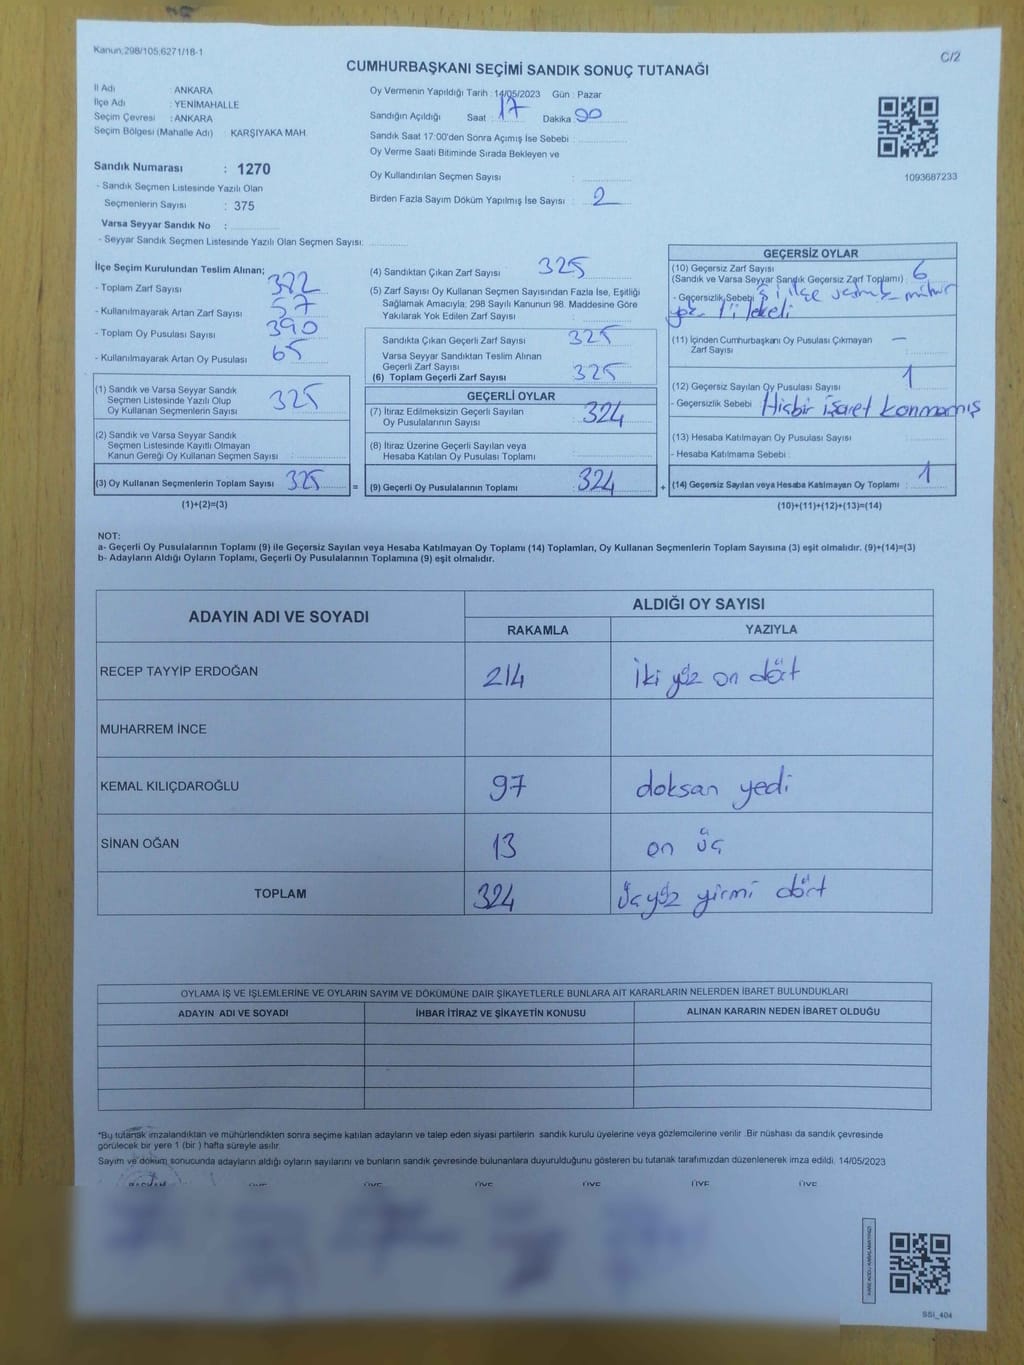 Kanun.298/105,6271/18-1
C/2
CUMHURBAŞKANI SEÇİMİ SANDIK SONUÇ TUTANAĞI
İl Adı : ANKARA
İlçe Adı : YENİMAHALLE
Seçim Çevresi : ANKARA
Seçim Bölgesi (Mahalle Adı) : KARŞIYAKA MAH.
Sandık Numarası : 1270
- Sandık Seçmen Listesinde Yazılı Olan
Seçmenlerin Sayısı : 375
Varsa Seyyar Sandık No :
- Seyyar Sandık Seçmen Listesinde Yazılı Olan Seçmen Sayısı:
Oy Vermenin Yapıldığı Tarih : 14/05/2023 Gün : Pazar
Sandığın Açıldığı Saat : 17 Dakika : 00
Sandık Saat 17:00'den Sonra Açımış İse Sebebi :
Oy Verme Saati Bitiminde Sırada Bekleyen ve
Oy Kullandırılan Seçmen Sayısı :
Birden Fazla Sayım Döküm Yapılmış İse Sayısı : 2
1093687233
İlçe Seçim Kurulundan Teslim Alınan;
- Toplam Zarf Sayısı : 382
- Kullanılmayarak Artan Zarf Sayısı : 57
- Toplam Oy Pusulası Sayısı : 390
- Kullanılmayarak Artan Oy Pusulası : 65
(1) Sandık ve Varsa Seyyar Sandık
Seçmen Listesinde Yazılı Olup
Oy Kullanan Seçmenlerin Sayısı : 325
(2) Sandık ve Varsa Seyyar Sandık
Seçmen Listesinde Kayıtlı Olmayan
Kanun Gereği Oy Kullanan Seçmen Sayısı :
(3) Oy Kullanan Seçmenlerin Toplam Sayısı : 325
(1)+(2)=(3)
=
(4) Sandıktan Çıkan Zarf Sayısı : 325
(5) Zarf Sayısı Oy Kullanan Seçmen Sayısından Fazla İse, Eşitliği
Sağlamak Amacıyla; 298 Sayılı Kanunun 98. Maddesine Göre
Yakılarak Yok Edilen Zarf Sayısı :
Sandıkta Çıkan Geçerli Zarf Sayısı : 325
Varsa Seyyar Sandıktan Teslim Alınan
Geçerli Zarf Sayısı :
(6) Toplam Geçerli Zarf Sayısı : 325
GEÇERLİ OYLAR
(7) İtiraz Edilmeksizin Geçerli Sayılan
Oy Pusulalarının Sayısı : 324
(8) İtiraz Üzerine Geçerli Sayılan veya
Hesaba Katılan Oy Pusulası Toplamı :
(9) Geçerli Oy Pusulalarının Toplamı : 324
+
GEÇERSİZ OYLAR
(10) Geçersiz Zarf Sayısı
(Sandık ve Varsa Seyyar Sandık Geçersiz Zarf Toplamı) : 6
- Geçersizlik Sebebi : ilçe mühür
yok
(11) İçinden Cumhurbaşkanı Oy Pusulası Çıkmayan
Zarf Sayısı : —
(12) Geçersiz Sayılan Oy Pusulası Sayısı : 1
- Geçersizlik Sebebi : Hiçbir işaret konmamış
(13) Hesaba Katılmayan Oy Pusulası Sayısı :
- Hesaba Katılmama Sebebi :
(14) Geçersiz Sayılan veya Hesaba Katılmayan Oy Toplamı : 1
(10)+(11)+(12)+(13)=(14)
NOT:
a- Geçerli Oy Pusulalarının Toplamı (9) ile Geçersiz Sayılan veya Hesaba Katılmayan Oy Toplamı (14) Toplamları, Oy Kullanan Seçmenlerin Toplam Sayısına (3) eşit olmalıdır. (9)+(14)=(3)
b- Adayların Aldığı Oyların Toplamı, Geçerli Oy Pusulalarının Toplamına (9) eşit olmalıdır.
ADAYIN ADI VE SOYADI ALDIĞI OY SAYISI
RAKAMLA YAZIYLA
RECEP TAYYİP ERDOĞAN 214 İki yüz on dört
MUHARREM İNCE
KEMAL KILIÇDAROĞLU 97 doksan yedi
SİNAN OĞAN 13 on üç
TOPLAM 324 üçyüz yirmi dört
OYLAMA İŞ VE İŞLEMLERİNE VE OYLARIN SAYIM VE DÖKÜMÜNE DAİR ŞİKAYETLERLE BUNLARA AİT KARARLARIN NELERDEN İBARET BULUNDUKLARI
ADAYIN ADI VE SOYADI İHBAR İTİRAZ VE ŞİKAYETİN KONUSU ALINAN KARARIN NEDEN İBARET OLDUĞU
*Bu tutanak imzalandıktan ve mühürlendikten sonra seçime katılan adayların ve talep eden siyasi partilerin sandık kurulu üyelerine veya gözlemcilerine verilir. Bir nüshası da sandık çevresinde
görülecek bir yere 1 (bir ) hafta süreyle asılır.
Sayım ve döküm sonucunda adayların aldığı oyların sayılarını ve bunların sandık çevresinde bulunanlara duyurulduğunu gösteren bu tutanak tarafımızdan düzenlenerek imza edildi. 14/05/2023
BAŞKAN ÜYE ÜYE ÜYE ÜYE ÜYE ÜYE
SSİ_404